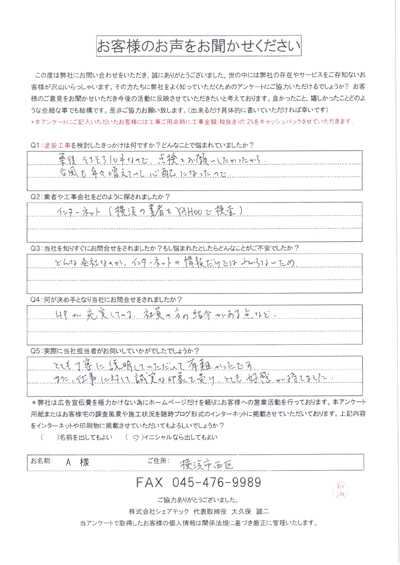 お客様のお声をお聞かせください
この度は弊社にお問い合わせをいただき、誠にありがとうございました。世の中には弊社の存在やサービスをご存知ないお
客様が沢山いらっしゃいます。その方たちに弊社をよく知っていただくためのアンケートにご協力いただけるでしょうか？ お客
様のご意見をお聞かせいただき今後の活動に反映させていただきたいと考えております。良かったこと、嬉しかったことどのよ
うな些細な事でも結構です。是非ご協力お願い致します。（出来るだけ具体的に書いていただければ幸いです）
*本アンケートにご記入いただいたお客様には工事ご用命時に工事金額(税抜き)の2%をキャッシュバックさせていただきます。
Q1：塗装工事を検討したきっかけは何ですか？どんなことで悩まれていましたか？
築後 そろそろ10年なので、点検をお願いしたかったから
台風も年々増えていい心配になったので
Q2：業者や工事会社をどのように探されましたか？
インターネット（横浜の業者をYAHOOで検索）
Q3：当社を知りすぐにお問合せをされましたか？もし悩まれたとしたらどんなことがご不安でしたか？
どんな会社なのか、インターネットの情報だけでは
Q4：何が決め手となり当社にお問合せをされましたか？
HPが充実している、社員の方の紹介がある点など、
Q5：実際に当社担当者がお伺いしていかがでしたでしょうか？
とても丁寧に説明していただいて有難かったです
また仕事に対して誠実な印象を受け、とても好感が持てました
*弊社は広告宣伝費を極力かけない為にホームページだけを頼りにお客様への営業活動を行っております。本アンケート
用紙またはお客様宅の調査風景や施工状況を随時ブログ形式のインターネットに掲載させていただいております。上記内容
をインターネットや印刷物に掲載させていただいてもよろしいでしょうか？
（ ）名前を出してもよい （○）イニシャルなら出してもよい
お名前： A 様 ご住所： 横浜市西区
FAX 045-476-9989
ご協力ありがとうございました。
株式会社シェアテック 代表取締役 大久保 誠二
当アンケートで取得したお客様の個人情報は関係法規に基づき厳正に管理いたします。